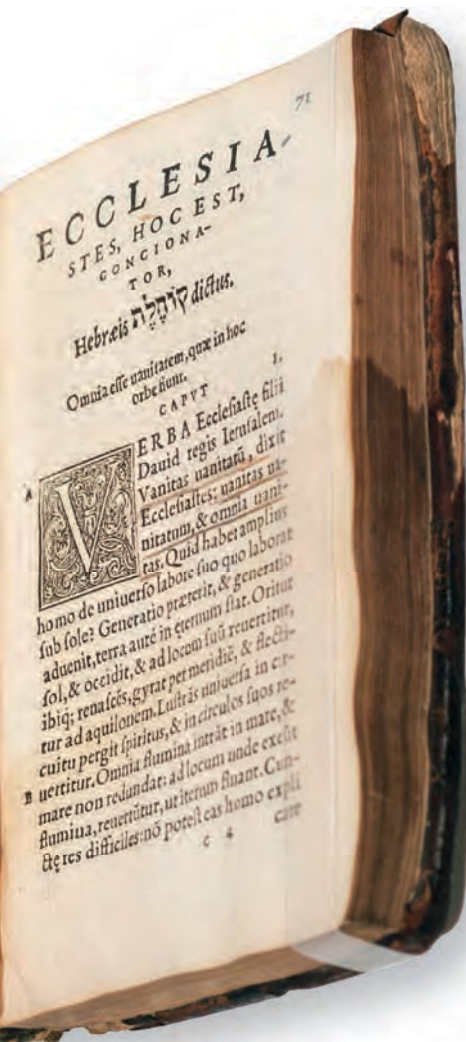 71
ECCLESIA-
STES, HOC EST,
CONCIONA-
TOR,
Hebræis קוֹהֶלֶת dictus.
Omnia esse uanitatem, quæ in hoc
orbe fiunt.
CAPVT I.
A VERBA Ecclesiastę filii
Dauid regis Ierusalem.
Vanitas uanitatũ, dixit
Ecclesiastes: uanitas ua-
nitatum, & omnia uani-
tas. Quid habet amplius
homo de uniuerso labore suo quo laborat
sub sole? Generatio præterit, & generatio
aduenit, terra autẽ in ęternum stat. Oritur
sol, & occidit, & ad locum suũ reuertitur,
ibiq; renascẽs, gyrat per meridiẽ, & flecti-
tur ad aquilonem. Lustrãs uniuersa in cir-
cuitu pergit spiritus, & in circulos suos re-
B uertitur. Omnia flumina intrãt in mare, &
mare non redundat: ad locum unde exeũt
flumina, reuertũtur, ut iterum fluant. Cun-
ctę res difficiles: nõ potest eas homo expli
c 4 care